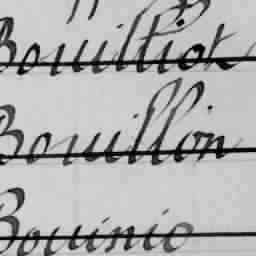 Bouilliot
Bouillon
Bouinie